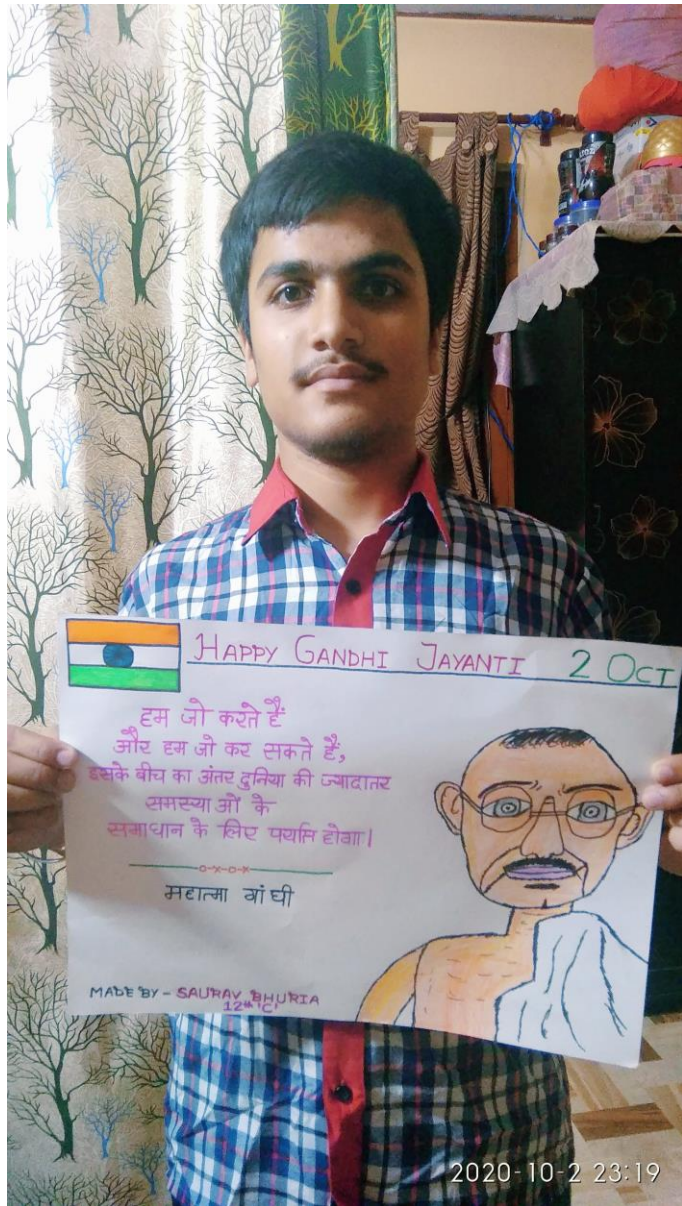 HAPPY GANDHI JAYANTI 2 OCT
हम जो करते हैं
और हम जो कर सकते हैं,
इसके बीच का अंतर दुनिया की ज्यादातर
समस्या ओं के
समाधान के लिए पर्याप्त होगा।
महात्मा गांधी
MADE BY - SAURAV BHURIA
12th 'C'
2020-10-2 23:19